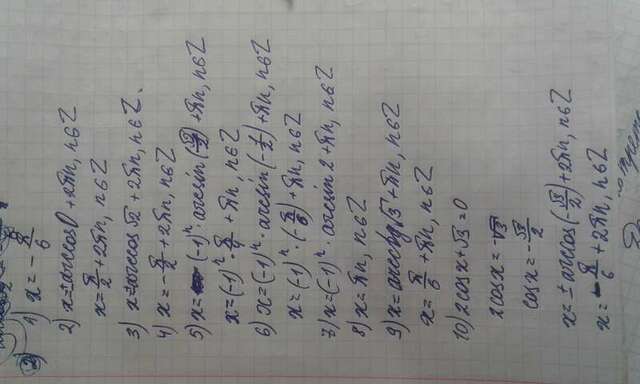 1) x = -π/6
2) x = ± arccos 0 + 2πn, n∈Z
x = π/2 + 2πn, n∈Z
3) x = ± arccos √2 + 2πn, n∈Z.
4) x = -π/2 + 2πn, n∈Z
5) x = (-1)ⁿ · arcsin (√2/2) + πn, n∈Z
x = (-1)ⁿ · π/4 + πn, n∈Z
6) x = (-1)ⁿ · arcsin (-1/2) + πn, n∈Z
x = (-1)ⁿ · (-π/6) + πn, n∈Z
7) x = (-1)ⁿ · arcsin 2 + πn, n∈Z
8) x = πn, n∈Z
9) x = arcctg √3 + πn, n∈Z
x = π/6 + πn, n∈Z
10) 2cos x + √3 = 0
2cos x = -√3
cos x = -√3/2
x = ± arccos (-√3/2) + 2πn, n∈Z
x = -π/6 + 2πn, n∈Z